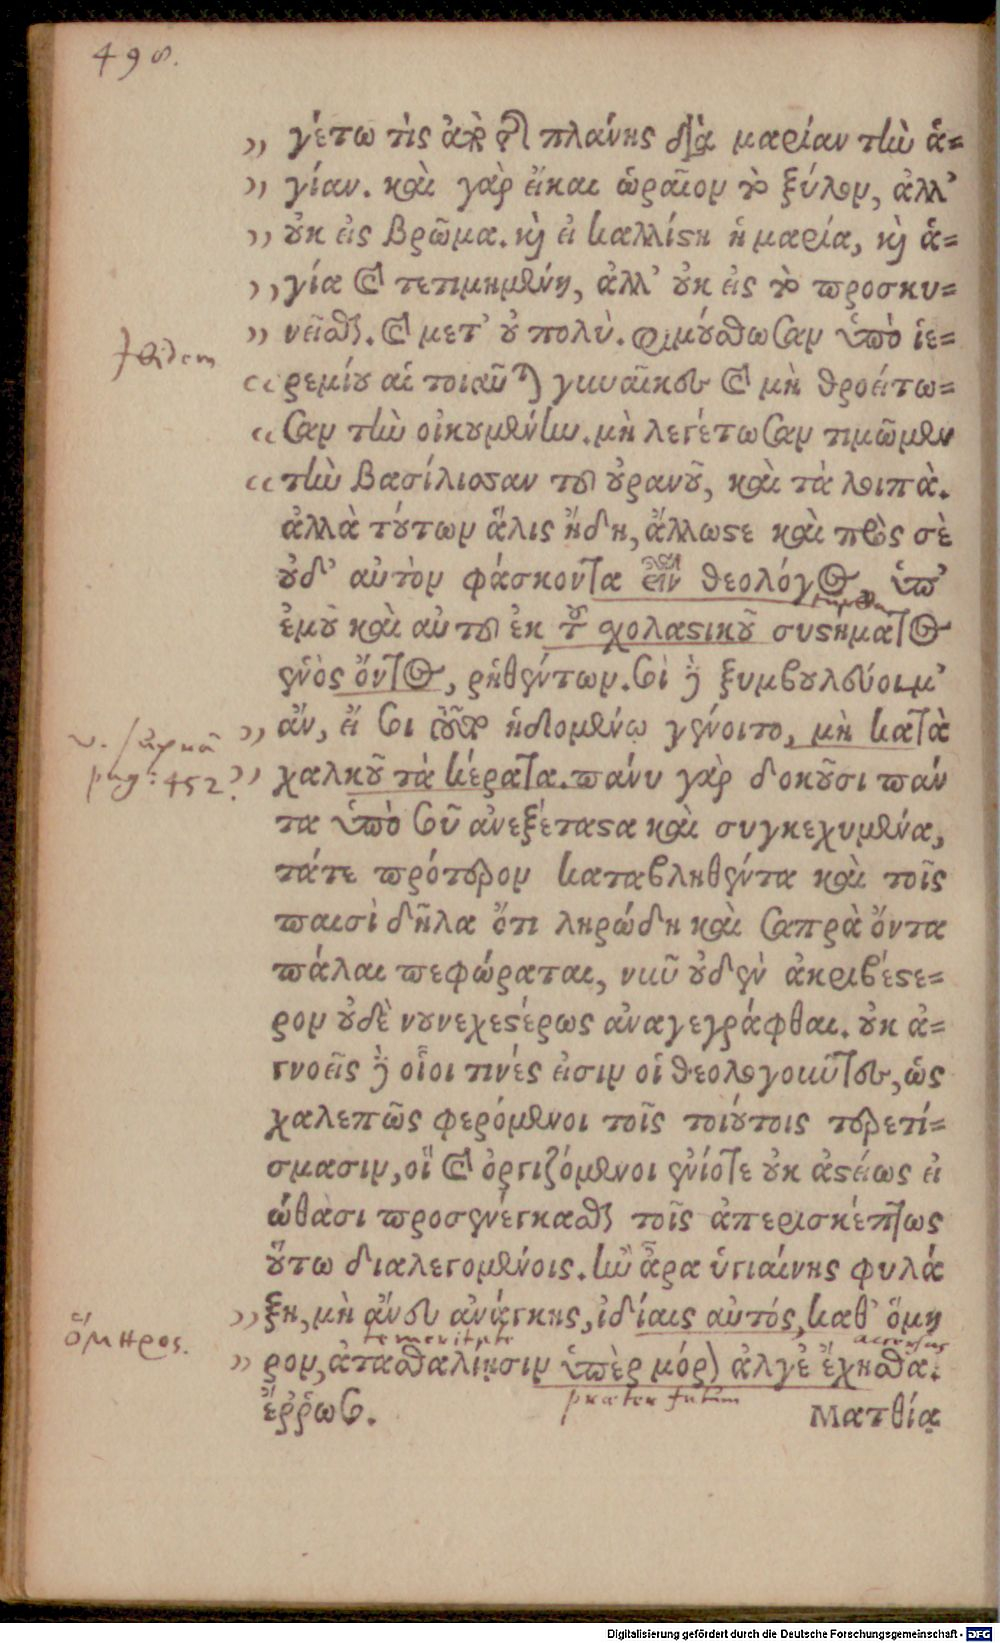 498.
γέτω τὶς ἀπὸ τῆς πλάνης διὰ μαρίαν τὴν ἁ=
γίαν. καὶ γὰρ εἴκαι ὡραῖον τὸ ξύλον, ἀλλ'
οὐκ εἰς βρῶμα. καὶ εἰ καλλίστη ἡ μαρία, καὶ ἁ=
γία καὶ τετιμημένη, ἀλλ' οὐκ εἰς τὸ προσκυ=
νεῖσθαι. καὶ μετ' οὐ πολὺ. φιμούσθωσαν ὑπὸ ἱε=
Ibidem
ρεμίου αἱ τοιαῦται γυναῖκες καὶ μὴ θροείτω=
σαν τὴν οἰκουμένην. μὴ λεγέτωσαν τιμῶμεν
τὴν βασίλισσαν τοῦ οὐρανοῦ, καὶ τὰ λοιπὰ.
ἀλλὰ τούτων ἅλις ἤδη, ἄλλωστε καὶ πρὸς σὲ
οὐδ' αὐτὸν φάσκοντα εἶναι θεολόγος, ὑπ'
ἐμοῦ καὶ αὐτοῦ ἐκ τοῦ σχολαστικοῦ συστήματος
ἑνὸς ὄντος, ῥηθέντων. σοὶ δὲ ξυμβουλεύοιμ'
ἄν, εἴ σοι ἡδομένῳ γένοιτο, μὴ κατὰ
v. supra
pag: 452.
χαλκοῦ τὰ κέρατα. πάνυ γὰρ δοκοῦσι πάν
τα ὑπὸ σοῦ ἀνεξέταστα καὶ συγκεχυμένα,
τάτε πρότερον καταβληθέντα καὶ τοῖς
παισὶ δῆλα ὅτι ληρώδη καὶ σαπρὰ ὄντα
πάλαι πεφώραται, νῦν οὐδὲν ἀκριβέστε=
ρον οὐδὲ νουνεχεστέρως ἀναγεγράφθαι. οὐκ ἀ=
γνοεῖς δὲ οἷοι τινές εἰσιν οἱ θεολογοῦντες, ὡς
χαλεπῶς φερόμενοι τοῖς τοιούτοις τερετί=
σμασιν, οἳ καὶ ὀργιζόμενοι ἐνίοτε οὐκ ἀστείως εἰ
ώθασι προσενέγκασθαι τοῖς ἀπερισκέπτως
οὕτω διαλεγομένοις. κἂν ἄρα ὑγιαίνης φυλά
ξῃ, μὴ ἄνευ ἀνάγκης, ἰδίαις αὐτός, καθ' ὅμη
ὅμηρος.
temeritate
ρον, ἀτασθαλίῃσιν ὑπὲρ μόρον ἄλγε' ἔχησθα.
praeter fatum
ἔῤῥωσο.
Ματθίᾳ
Digitalisierung gefördert durch die Deutsche Forschungsgemeinschaft - DFG